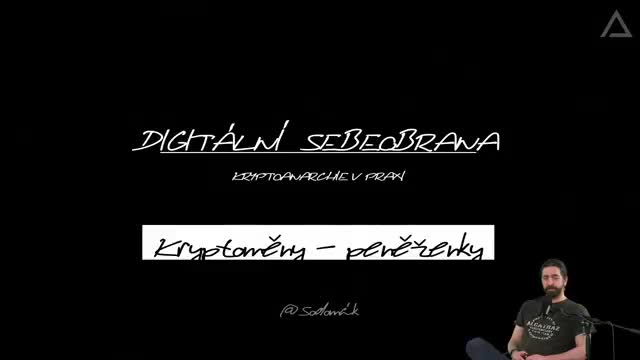 DIGITÁLNÍ SEBEOBRANA
KRYPTOANARCHIE V PRAXI
Kryptoměny – peněženky
ALCATRAZ